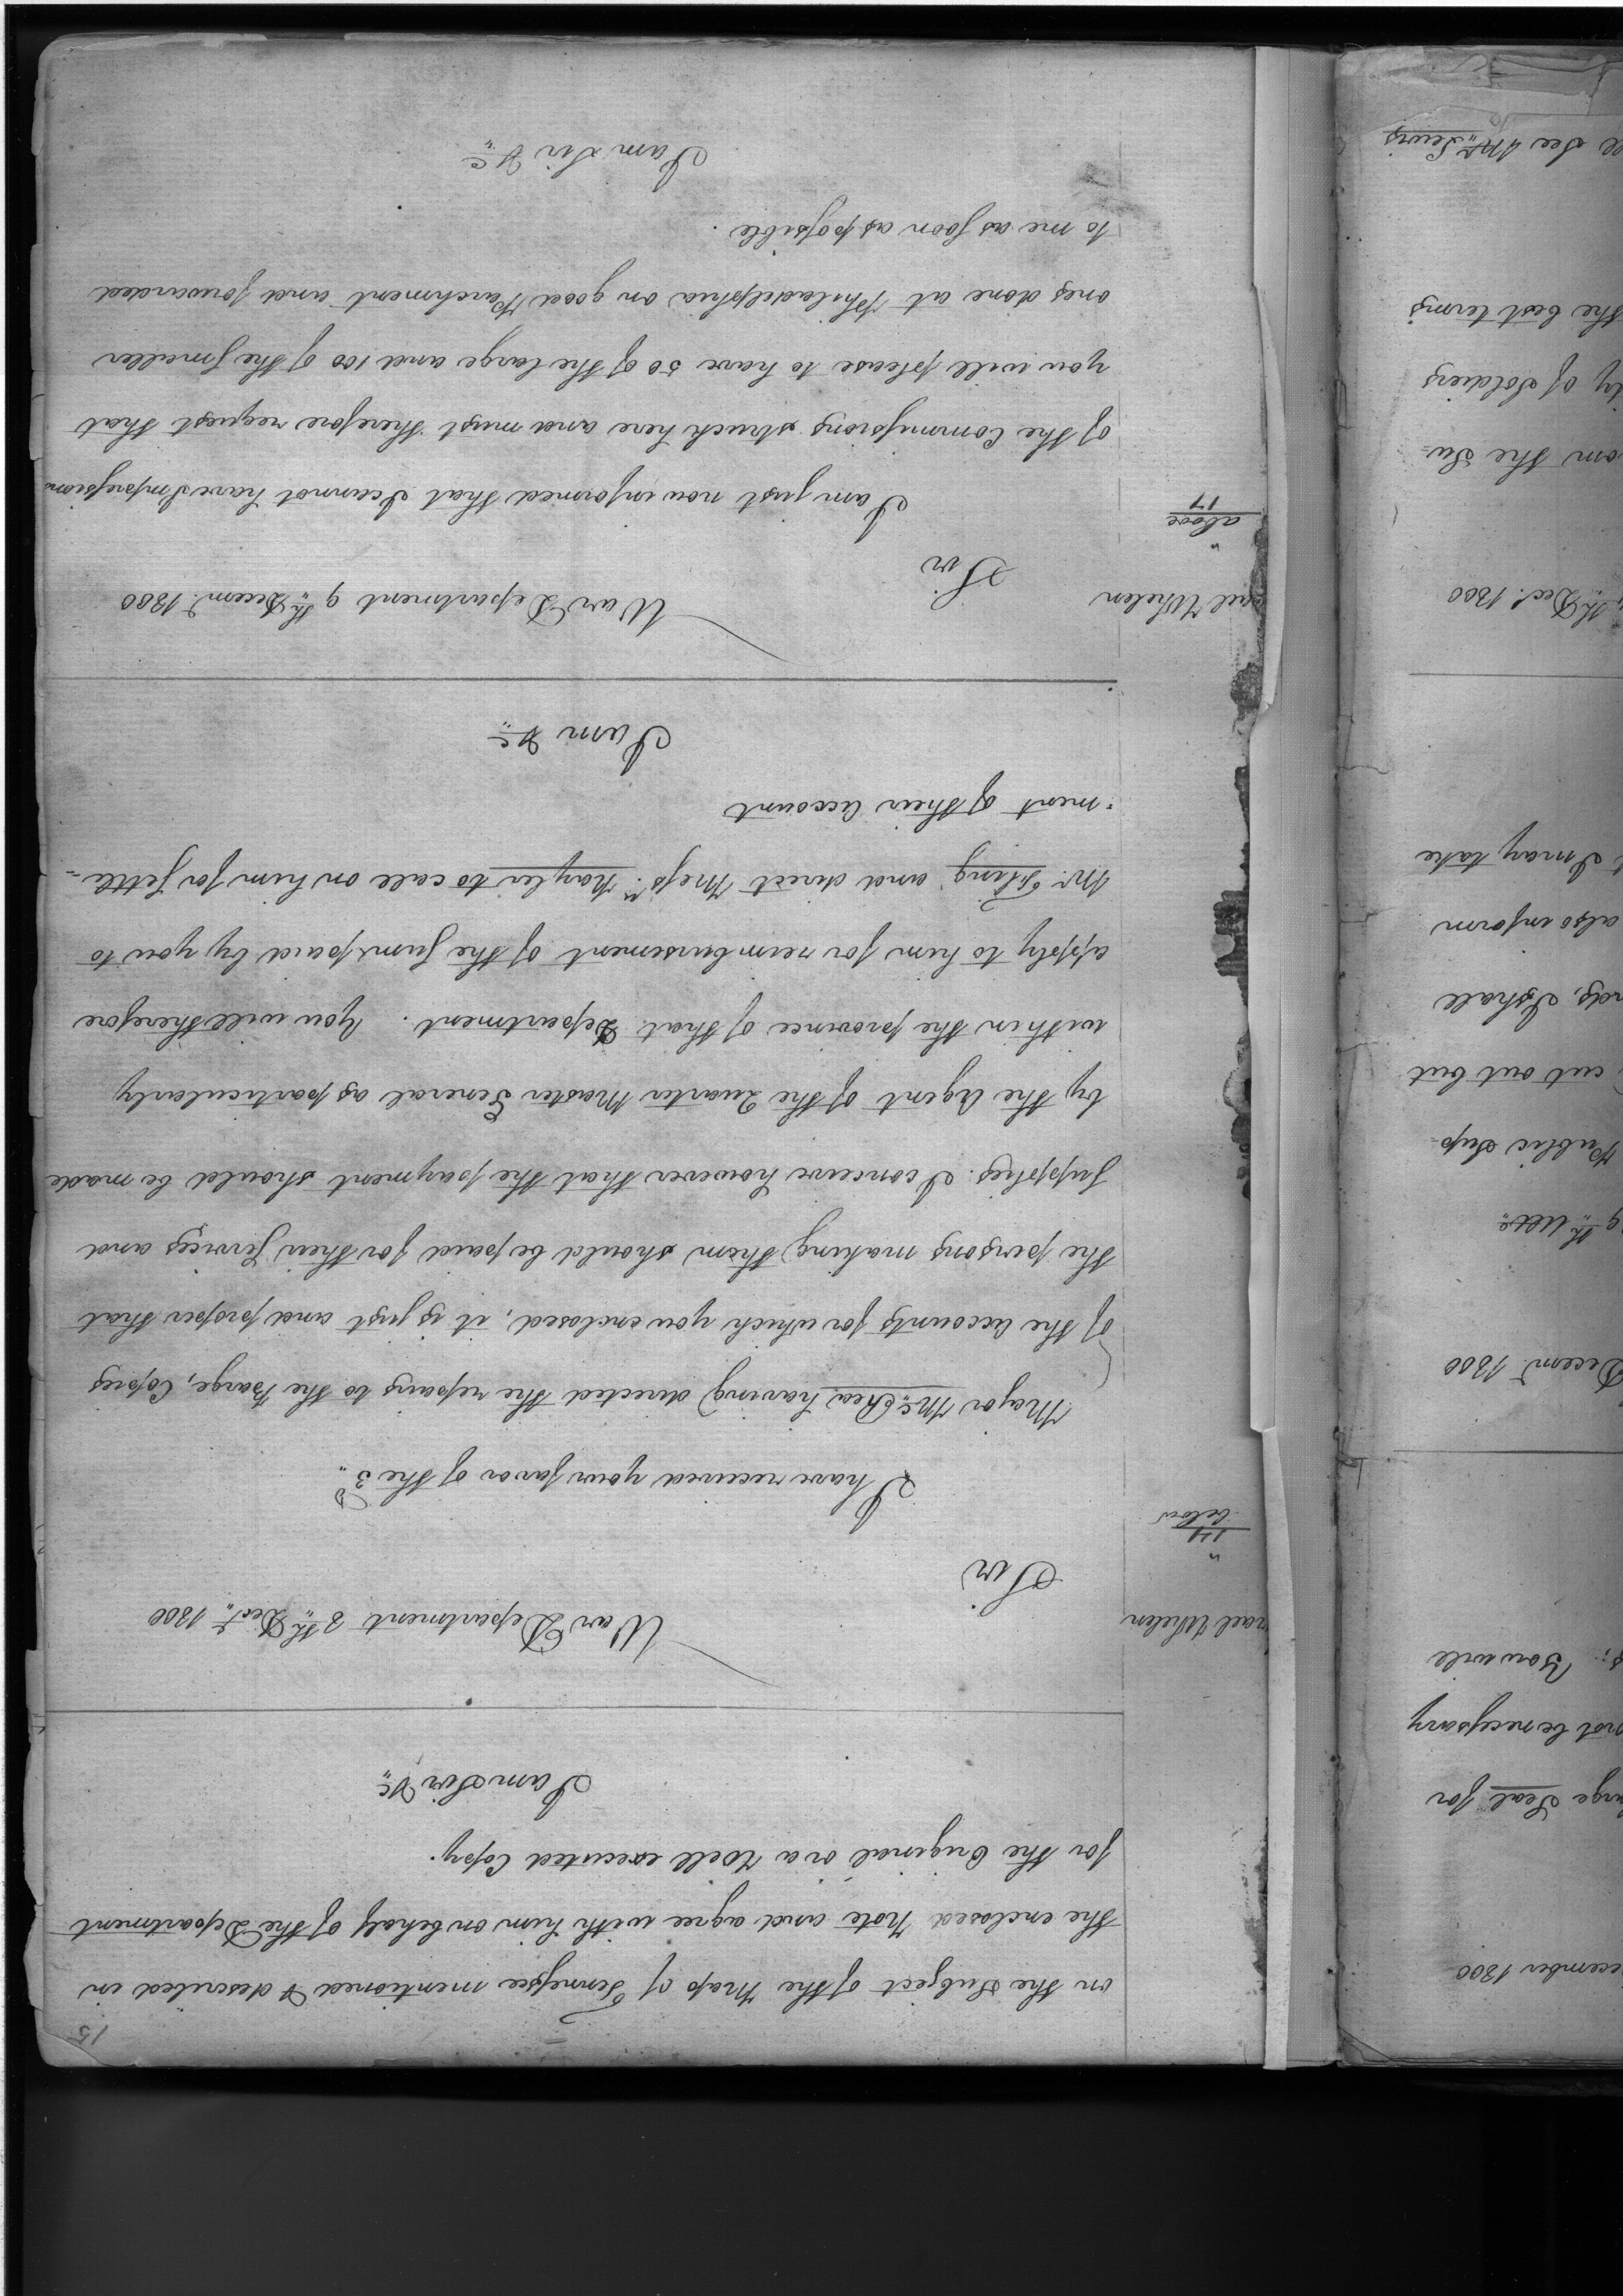 15
on the Subject of the Map of Tennessee mentioned & described in
the enclosed Note and agree with him on behalf of the Department
for the Original or a Well executed Copy.
I am Sir &c
War Department 8th Decr. 1800
rael Whelen
"
14
below
Sir
I have received your favor of the 3d
Major McRea having directed the repairs to the Barge, Copies
of the accounts for which you enclosed, it is just and proper that
the persons making them should be paid for their Services and
Supplies. I conceive however that the payment should be made
by the Agent of the Quarter Master General as particularly
within the province of that Department. You will therefore
apply to him for reimbursement of the Sum paid by you to
Mr. and direct Messrs. Naylor to call on him for settle=
=ment of their account
I am &c
War Department 9th Decemr. 1800
rael Whelen
"
above
17
Sir
I am just now informed that I cannot have Impressions
of the Commissions struck here and must therefore request that
you will please to have 50 of the large and 100 of the smaller
ones done at Philadelphia on good Parchment and forwarded
to me as soon as possible.
I am Sir &c
ecember 1800
Seal for
not be necessary
You will
Decemr. 1800
9th Ulto
Public Sup=
cut out but
I shall
also inform
I may take
th Decr. 1800
om the Su=
of Soldiers
the best terms
See Mr. Lewis